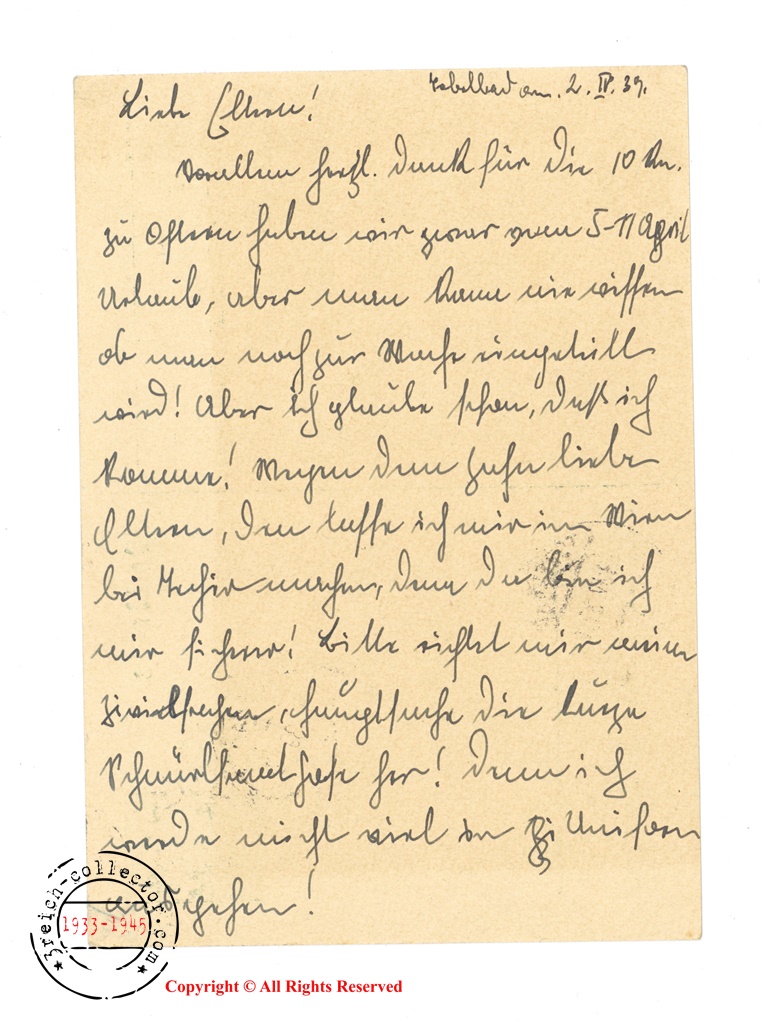 Tobelbad am. 2. IV. 39.
Liebe Eltern!
Vorallem herzl. Dank für die 10 Rm.
zu Ostern haben wir zwar vom 5-11 April
Urlaub, aber man kann nie wissen
ob man noch zur Wache eingeteilt
wird! Aber ich glaube schon, daß ich
komme! Wegen dem Zahn liebe
Eltern, den lasse ich mir in Wien
bei machen, denn da bin ich
mir sicherer! Bitte richtet mir meine
Zivielsachen, hauptsache die kurze
Schnürlsamthose her! Denn ich
werde nicht viel in Uniform
ausgehen!
3reich-collector.com
1933-1945
Copyright © All Rights Reserved